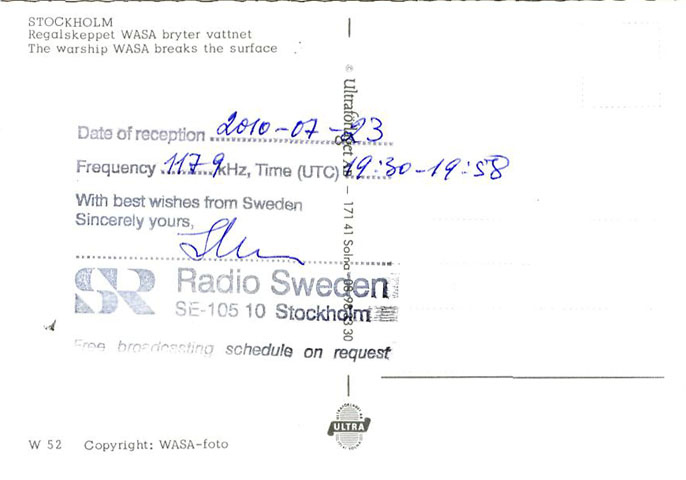 STOCKHOLM
Regalskeppet WASA bryter vattnet
The warship WASA breaks the surface
Date of reception 2010-07-23
Frequency 1179 kHz, Time (UTC) 19:30-19:58
With best wishes from Sweden
Sincerely yours,
SR Radio Sweden
SE-105 10 Stockholm
Free broadcasting schedule on request
© Ultraförlaget AB — 171 41 Solna
ULTRA
W 52 Copyright: WASA-foto